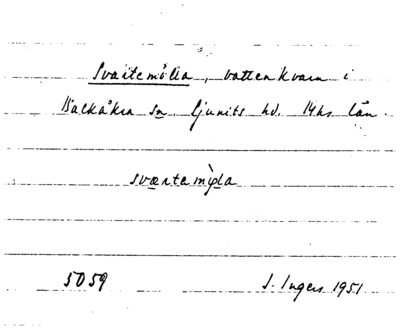 Svartemölla, vattenkvarn i
Balkåkra sn. Ljunits hd. Mhs län.
sværtemỳla
5059 I. Ingers 1951